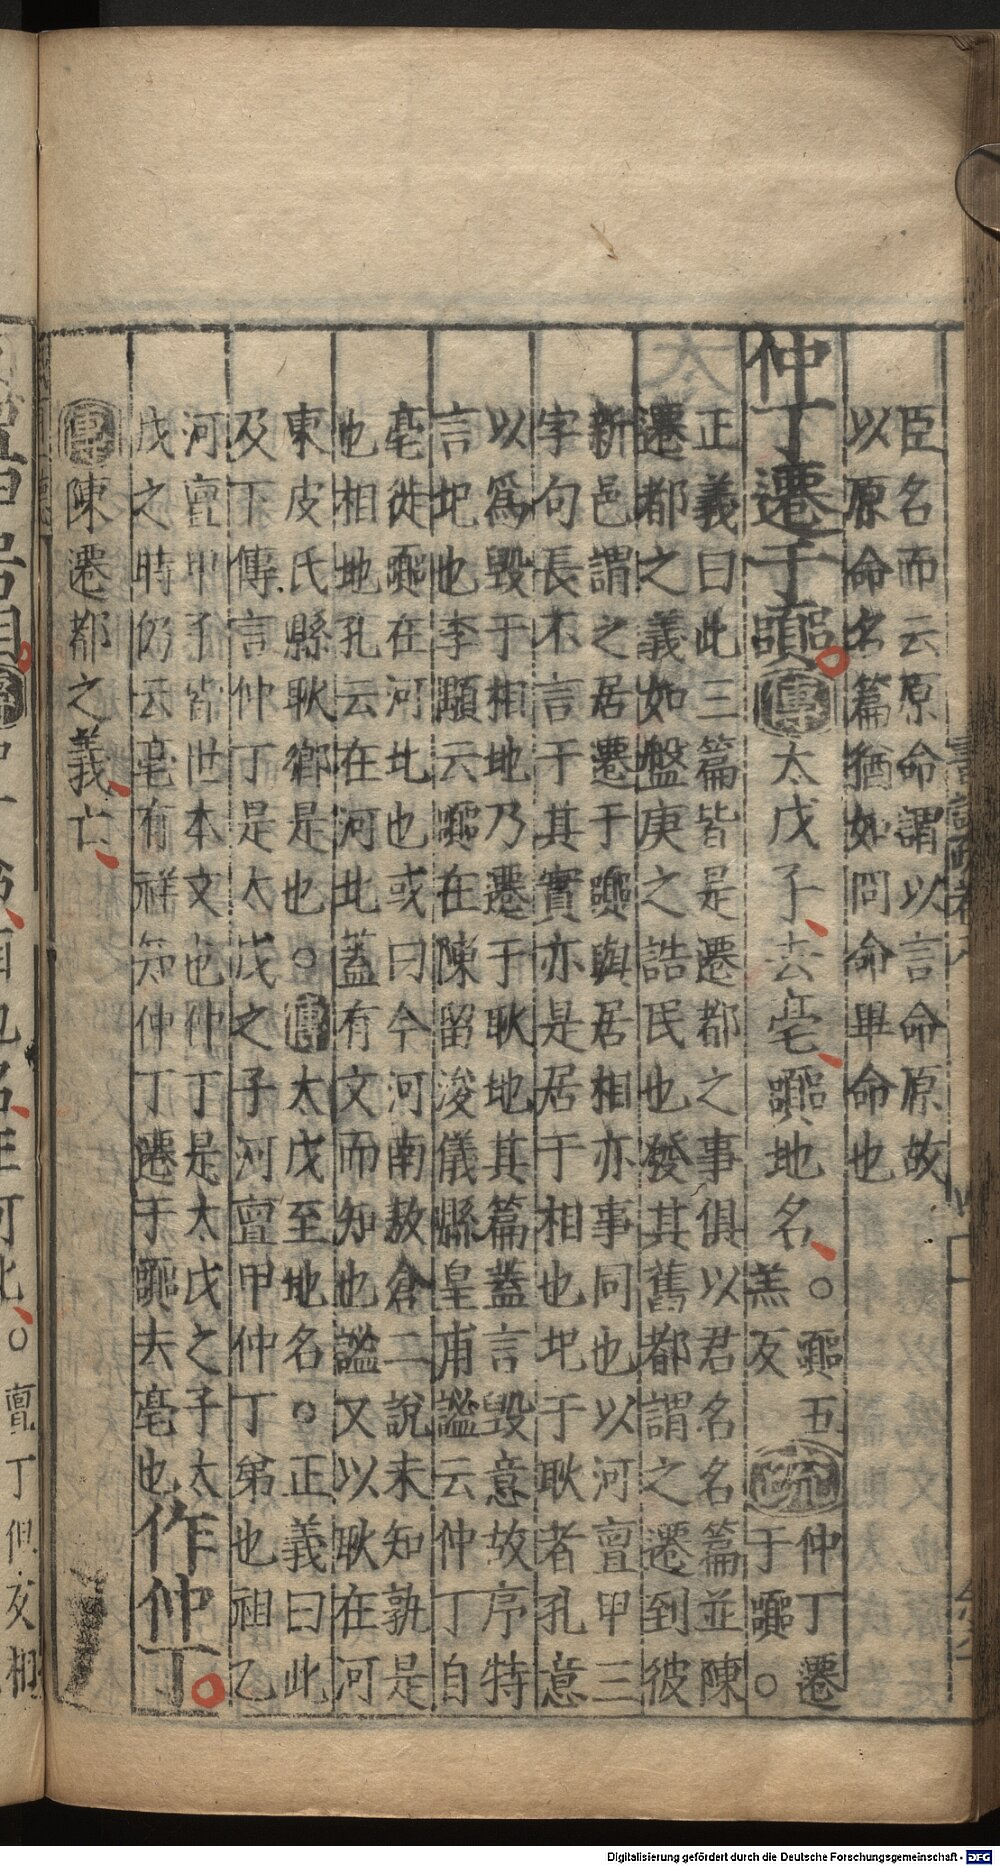 臣名而云原命謂以言命原故
以原命名篇猶如冏命畢命也
仲丁遷于囂傳太戊子去亳囂地名。囂五羔反疏仲丁遷于囂。
正義曰此三篇皆是遷都之事俱以君名名篇並陳
遷都之義如盤庚之誥民也發其舊都謂之遷到彼
新邑謂之居遷于囂與居相亦事同也以河亶甲三
字句長不言于其實亦是居于相也圯于耿者孔意
以爲毀于相地乃遷于耿地其篇蓋言毀意故序特
言圯也李顒云囂在陳留浚儀縣皇甫謐云仲丁自
亳徙囂在河北也或曰今河南敖倉二說未知孰是
也相地孔云在河北蓋有文而知也謐又以耿在河
東皮氏縣耿鄉是也。傳太戊至地名。正義曰此
及下傳言仲丁是太戊之子河亶甲仲丁弟也祖乙
河亶甲子皆世本文也仲丁是太戊之子太
戊之時仍云亳有祥知仲丁遷于囂去亳也
作仲丁
傳陳遷都之義亡
亶丁但反相
Digitalisierung gefördert durch die Deutsche Forschungsgemeinschaft - DFG